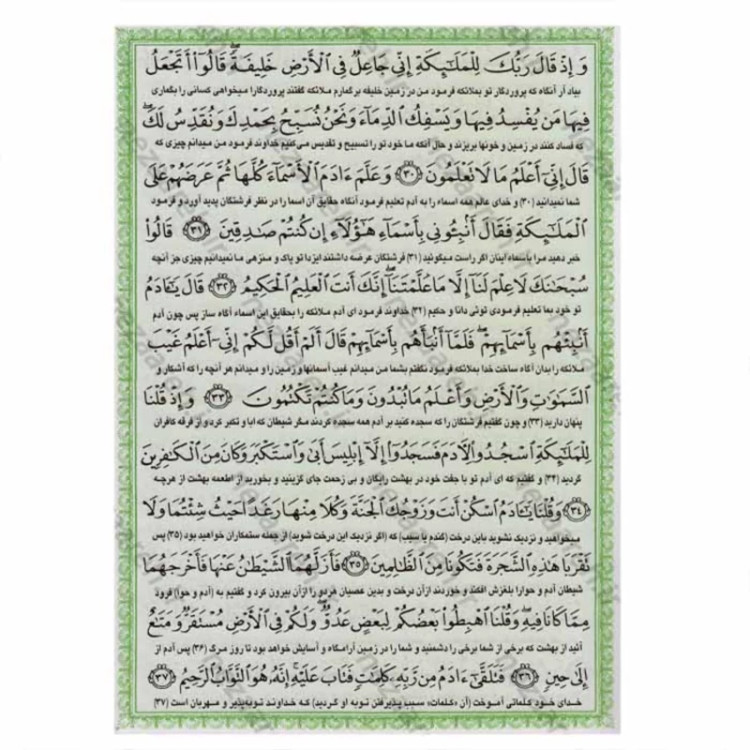 وَإِذْ قَالَ رَبُّكَ لِلْمَلَٰٓئِكَةِ إِنِّى جَاعِلٌ فِى ٱلْأَرْضِ خَلِيفَةً ۖ قَالُوٓا۟ أَتَجْعَلُ
بیاد آر آنگاه که پروردگار تو بملائکه فرمود من در زمین خلیفه بر گمارم ملائکه گفتند پروردگارا میخواهی کسانی را بگماری
فِيهَا مَن يُفْسِدُ فِيهَا وَيَسْفِكُ ٱلدِّمَآءَ وَنَحْنُ نُسَبِّحُ بِحَمْدِكَ وَنُقَدِّسُ لَكَ ۖ
که فساد کنند در زمین و خونها بریزند و حال آنکه ما خود تو را تسبیح و تقدیس می‌کنیم خداوند فرمود من میدانم چیزی که
قَالَ إِنِّىٓ أَعْلَمُ مَا لَا تَعْلَمُونَ ﴿٣٠﴾ وَعَلَّمَ ءَادَمَ ٱلْأَسْمَآءَ كُلَّهَا ثُمَّ عَرَضَهُمْ عَلَى
شما نمیدانید (۳۰) و خدای عالم همه اسماء را به آدم تعلیم فرمود آنگاه حقایق آن اسما را در نظر فرشتگان پدید آورد و فرمود
ٱلْمَلَٰٓئِكَةِ فَقَالَ أَنۢبِـُٔونِى بِأَسْمَآءِ هَٰٓؤُلَآءِ إِن كُنتُمْ صَٰدِقِينَ ﴿٣١﴾ قَالُوا۟
خبر دهید مرا باسماء اینان اگر راست میگوئید (۳۱) فرشتگان عرضه داشتند ایزدا تو پاک و منزهی ما نمیدانیم چیزی جز آنچه
سُبْحَٰنَكَ لَا عِلْمَ لَنَآ إِلَّا مَا عَلَّمْتَنَآ ۖ إِنَّكَ أَنتَ ٱلْعَلِيمُ ٱلْحَكِيمُ ﴿٣٢﴾ قَالَ يَٰٓـَٔادَمُ
تو خود بما تعلیم فرمودی توئی دانا و حکیم (۳۲) خداوند فرمود ای آدم ملائکه را بحقایق این اسماء آگاه ساز پس چون آدم
أَنۢبِئْهُم بِأَسْمَآئِهِمْ ۖ فَلَمَّآ أَنۢبَأَهُم بِأَسْمَآئِهِمْ قَالَ أَلَمْ أَقُل لَّكُمْ إِنِّىٓ أَعْلَمُ غَيْبَ
ملائکه را بدان آگاه ساخت خدا بملائکه فرمود نگفتم بشما من میدانم غیب آسمانها و زمین را و میدانم هر آنچه را که آشکار و
ٱلسَّمَٰوَٰتِ وَٱلْأَرْضِ وَأَعْلَمُ مَا تُبْدُونَ وَمَا كُنتُمْ تَكْتُمُونَ ﴿٣٣﴾ وَإِذْ قُلْنَا
پنهان دارید (۳۳) و چون گفتیم فرشتگان را که سجده کنید بر آدم همه سجده کردند مگر شیطان که ابا و تکبر کرد و از فرقه کافران
لِلْمَلَٰٓئِكَةِ ٱسْجُدُوا۟ لِـَٔادَمَ فَسَجَدُوٓا۟ إِلَّآ إِبْلِيسَ أَبَىٰ وَٱسْتَكْبَرَ وَكَانَ مِنَ ٱلْكَٰفِرِينَ
گردید (۳۴) و گفتیم که ای آدم تو با جفت خود در بهشت رایگان و بی زحمت جای گزینید و بخورید از اطعمه بهشت از هرچه
﴿٣٤﴾ وَقُلْنَا يَٰٓـَٔادَمُ ٱسْكُنْ أَنتَ وَزَوْجُكَ ٱلْجَنَّةَ وَكُلَا مِنْهَا رَغَدًا حَيْثُ شِئْتُمَا وَلَا
میخواهید و نزدیک نشوید باین درخت (گندم یا سیب) که (اگر نزدیک این درخت شوید) از جمله ستمکاران خواهید بود (۳۵) پس
تَقْرَبَا هَٰذِهِ ٱلشَّجَرَةَ فَتَكُونَا مِنَ ٱلظَّٰلِمِينَ ﴿٣٥﴾ فَأَزَلَّهُمَا ٱلشَّيْطَٰنُ عَنْهَا فَأَخْرَجَهُمَا
شیطان آدم و حوا را بلغزش افکند و خوردند از آن درخت و بدین عصیان هردو را از آن بیرون کرد و گفتیم به (آدم و حوا) فرود
مِمَّا كَانَا فِيهِ ۖ وَقُلْنَا ٱهْبِطُوا۟ بَعْضُكُمْ لِبَعْضٍ عَدُوٌّ ۖ وَلَكُمْ فِى ٱلْأَرْضِ مُسْتَقَرٌّ وَمَتَٰعٌ
آئید از بهشت که برخی از شما برخی را دشمنید و شما را در زمین آرامگاه و آسایش خواهد بود تا روز مرگ (۳۶) پس آدم از
إِلَىٰ حِينٍ ﴿٣٦﴾ فَتَلَقَّىٰٓ ءَادَمُ مِن رَّبِّهِۦ كَلِمَٰتٍ فَتَابَ عَلَيْهِ ۚ إِنَّهُۥ هُوَ ٱلتَّوَّابُ ٱلرَّحِيمُ ﴿٣٧﴾
خدای خود کلماتی آموخت (آن «کلمات» سبب پذیرفتن توبه او گردید) که خداوند توبه‌پذیر و مهربان است (۳۷)